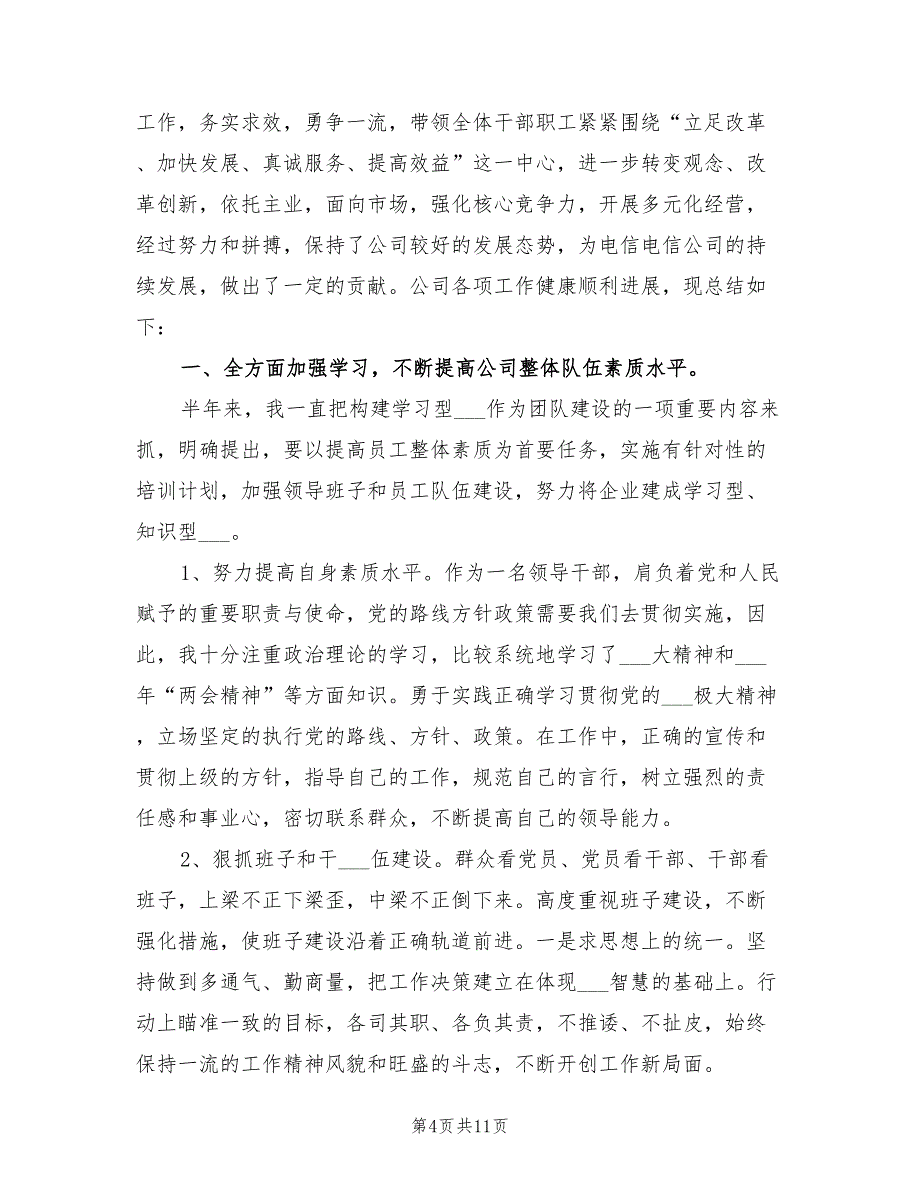 工作，务实求效，勇争一流，带领全体干部职工紧紧围绕“立足改革
、加快发展、真诚服务、提高效益”这一中心，进一步转变观念、改
革创新，依托主业，面向市场，强化核心竞争力，开展多元化经营，
经过努力和拼搏，保持了公司较好的发展态势，为电信电信公司的持
续发展，做出了一定的贡献。公司各项工作健康顺利进展，现总结如
下：
一、全方面加强学习，不断提高公司整体队伍素质水平。
半年来，我一直把构建学习型___作为团队建设的一项重要内容来
抓，明确提出，要以提高员工整体素质为首要任务，实施有针对性的
培训计划，加强领导班子和员工队伍建设，努力将企业建成学习型、
知识型___。
1、努力提高自身素质水平。作为一名领导干部，肩负着党和人民
赋予的重要职责与使命，党的路线方针政策需要我们去贯彻实施，因
此，我十分注重政治理论的学习，比较系统地学习了___大精神和___
年“两会精神”等方面知识。勇于实践正确学习贯彻党的___极大精神
，立场坚定的执行党的路线、方针、政策。在工作中，正确的宣传和
贯彻上级的方针，指导自己的工作，规范自己的言行，树立强烈的责
任感和事业心，密切联系群众，不断提高自己的领导能力。
2、狠抓班子和干___伍建设。群众看党员、党员看干部、干部看
班子，上梁不正下梁歪，中梁不正倒下来。高度重视班子建设，不断
强化措施，使班子建设沿着正确轨道前进。一是求思想上的统一。坚
持做到多通气、勤商量，把工作决策建立在体现___智慧的基础上。行
动上瞄准一致的目标，各司其职、各负其责，不推诿、不扯皮，始终
保持一流的工作精神风貌和旺盛的斗志，不断开创工作新局面。
第4页共11页